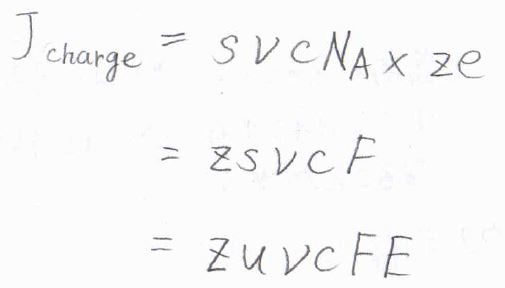 J charge = s ν c N_A × ze
= zsνcF
= zuνcFE